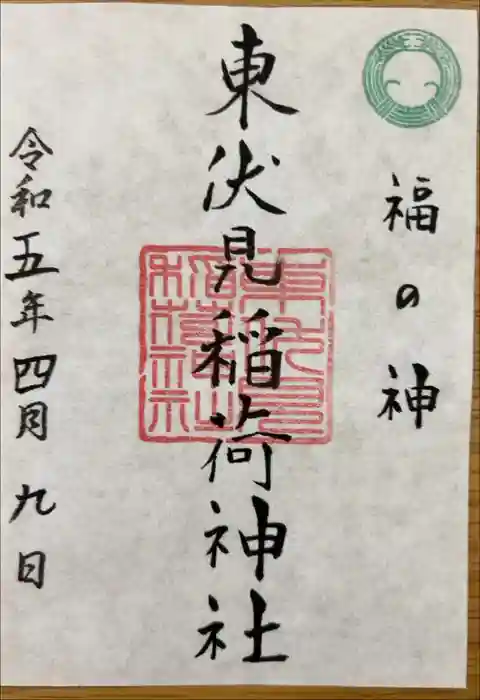 福の神
東伏見稲荷神社
令和五年四月九日